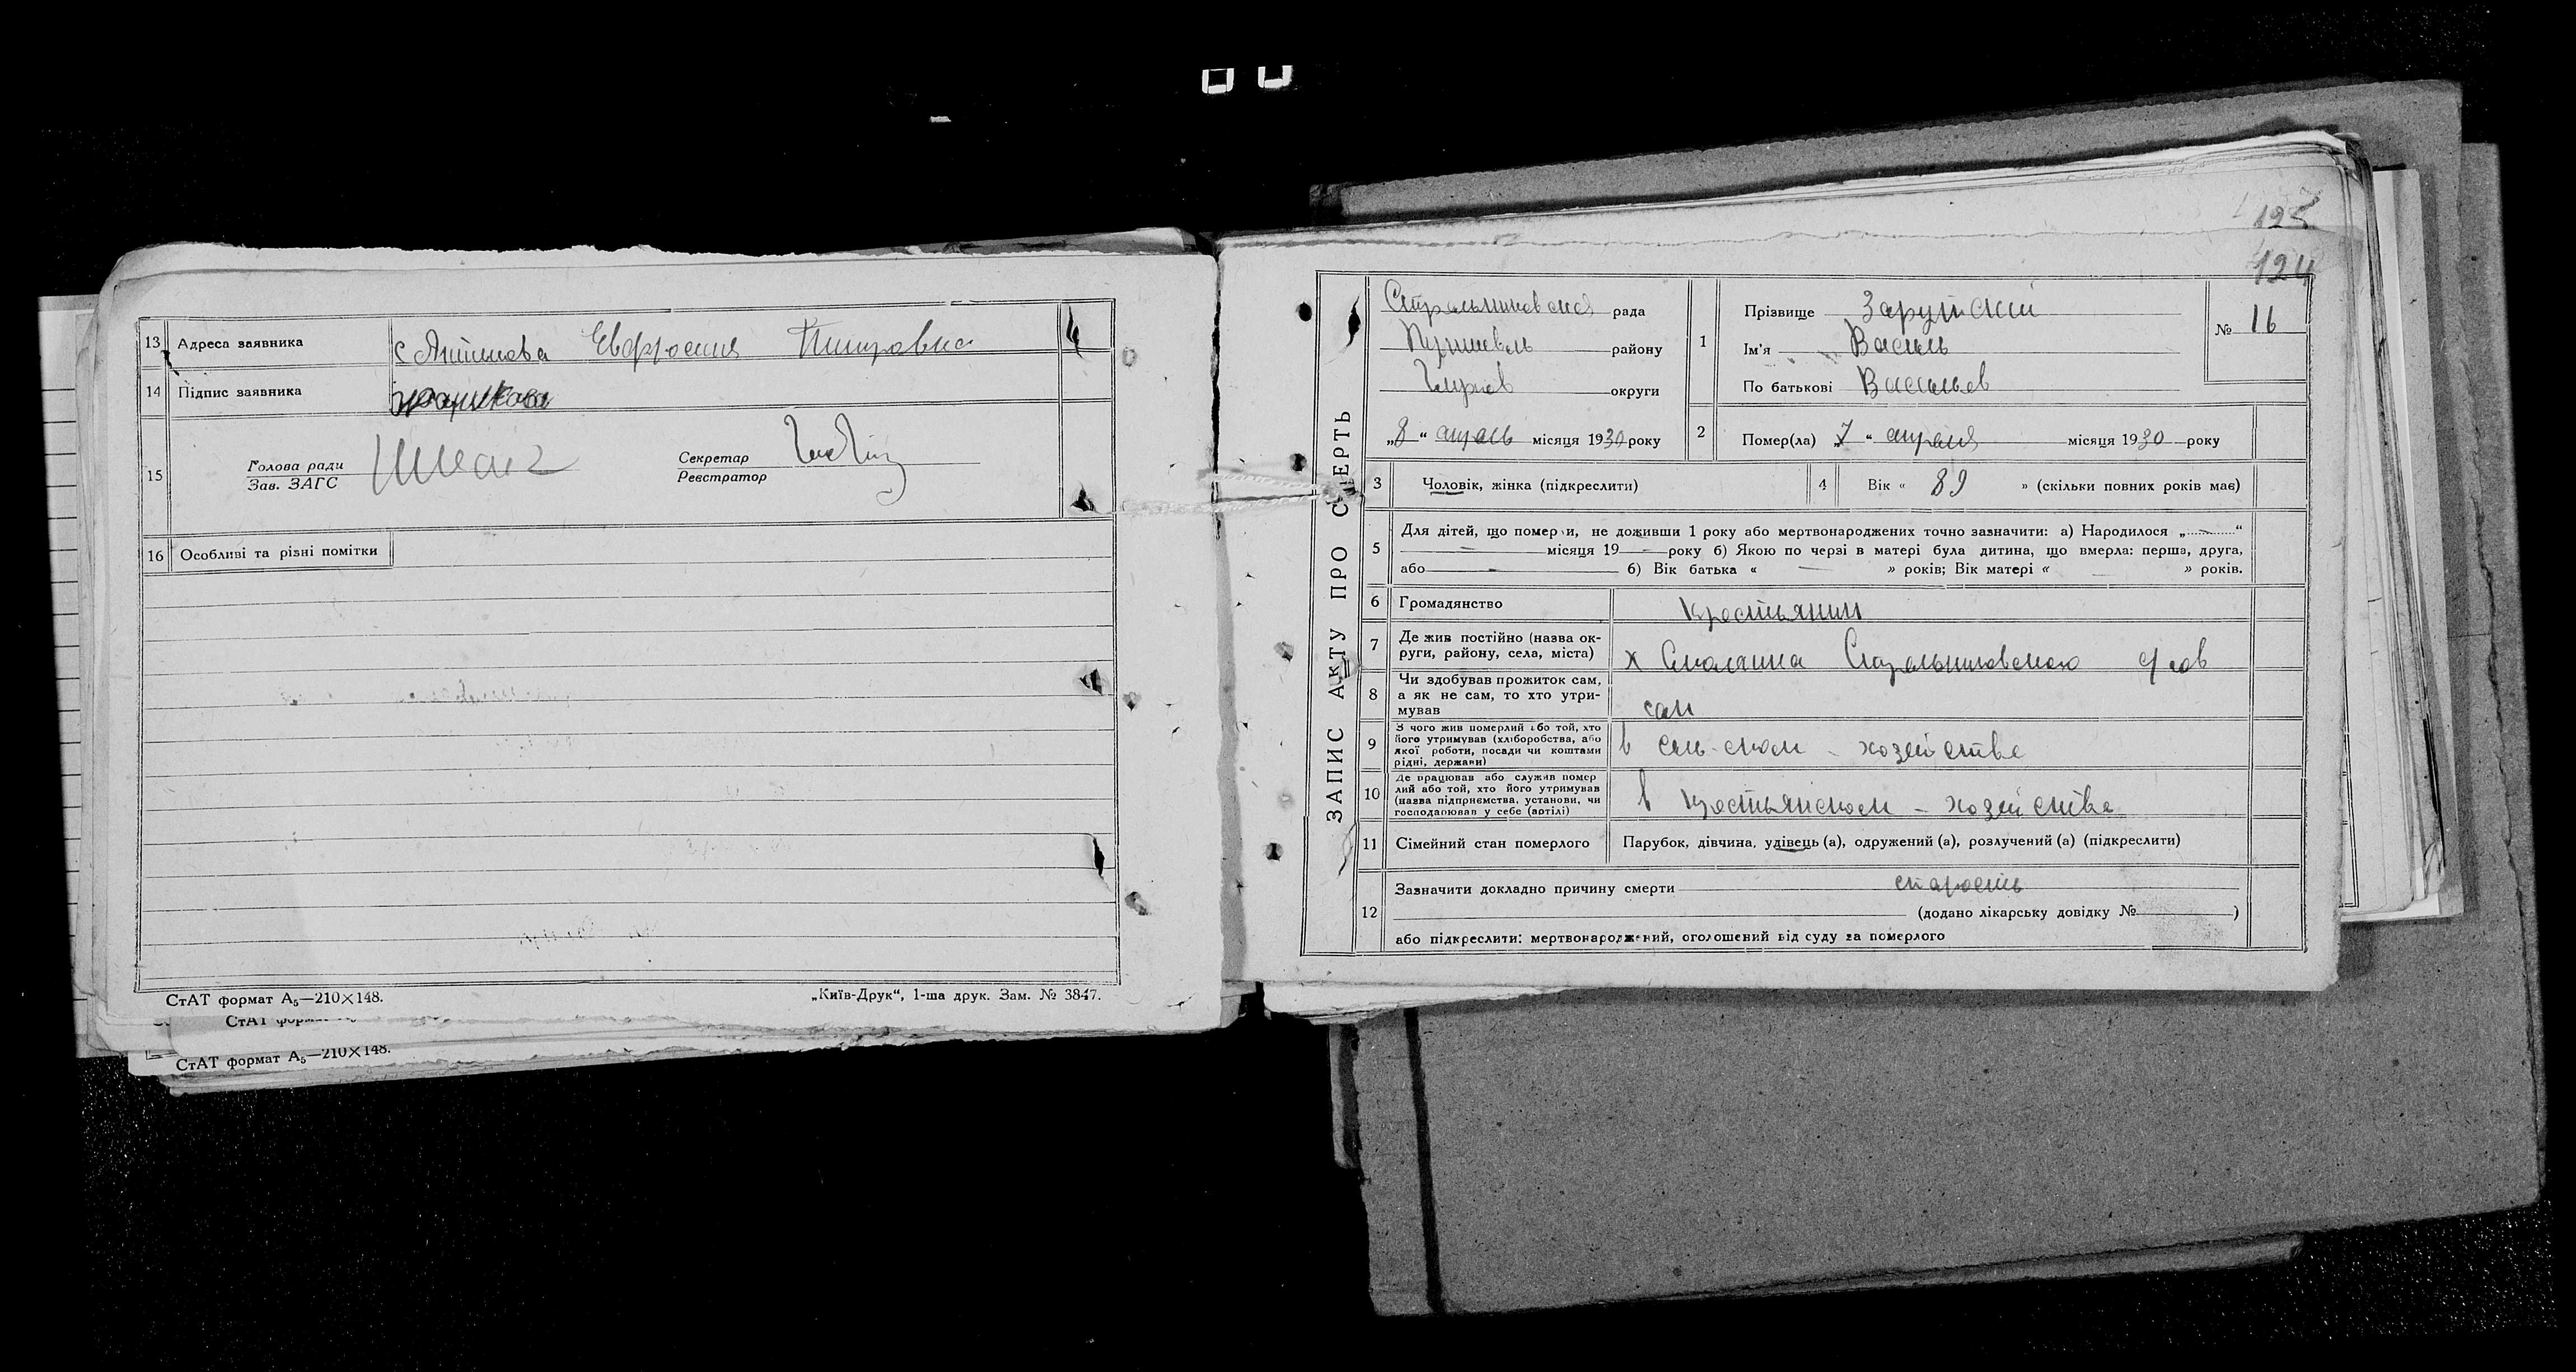 13 Адреса заявника Евфросиния
14 Підпис заявника
15 Голова ради Секретар
Зав. ЗАГС Реєстратор
16 Особливі та різні помітки
СтАТ формат А5—210×148. „Київ-Друк“, 1-ша друк. Зам. № 3847.
СтАТ форм
СтАТ формат А5—210×148.
124
ЗАПИС АКТУ ПРО СМЕРТЬ
Стрельниковская рада
Путивель району
Глухов округи
„8“ апрель місяця 1930 року
1 Прізвище Заруцкий
Ім'я Василь
По батькові Васильев
№ 16
2 Помер(ла) „7“ апреля місяця 1930 року
3 Чоловік, жінка (підкреслити)
4 Вік « 89 » (скільки повних років має)
5 Для дітей, що померли, не доживши 1 року або мертвонароджених точно зазначити: а) Народилося „ “
місяця 19 року б) Якою по черзі в матері була дитина, що вмерла: перша, друга,
або б) Вік батька « » років; Вік матері « » років.
6 Громадянство крестьянин
7 Де жив постійно (назва ок-
руги, району, села, міста) х Стрельниковского
8 Чи здобував прожиток сам,
а як не сам, то хто утри-
мував сам
9 З чого жив померлий або той, хто
його утримував (хліборобства, або
якої роботи, посади чи коштами
рідні, держави) в сель-ском - хозяйстве
10 Де працював або служив помер
лий або той, хто його утримував
(назва підприємства, установи, чи
господарював у себе (артілі) в крестьянском - хозяйстве
11 Сімейний стан померлого Парубок, дівчина, удівець (а), одружений (а), розлучений (а) (підкреслити)
12 Зазначити докладно причину смерти старость
(додано лікарську довідку № )
або підкреслити: мертвонароджений, оголошений від суду за померлого